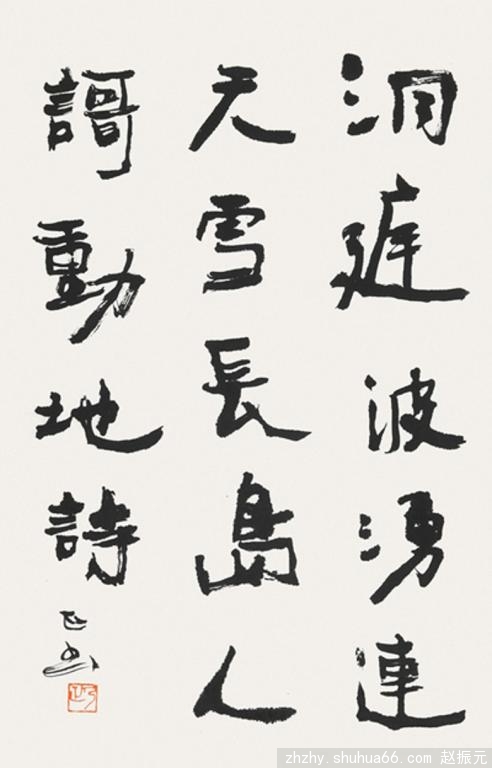 洞庭波湧連
天雪長島人
謌動地詩
zhzhy.shuhua66.com 赵振元